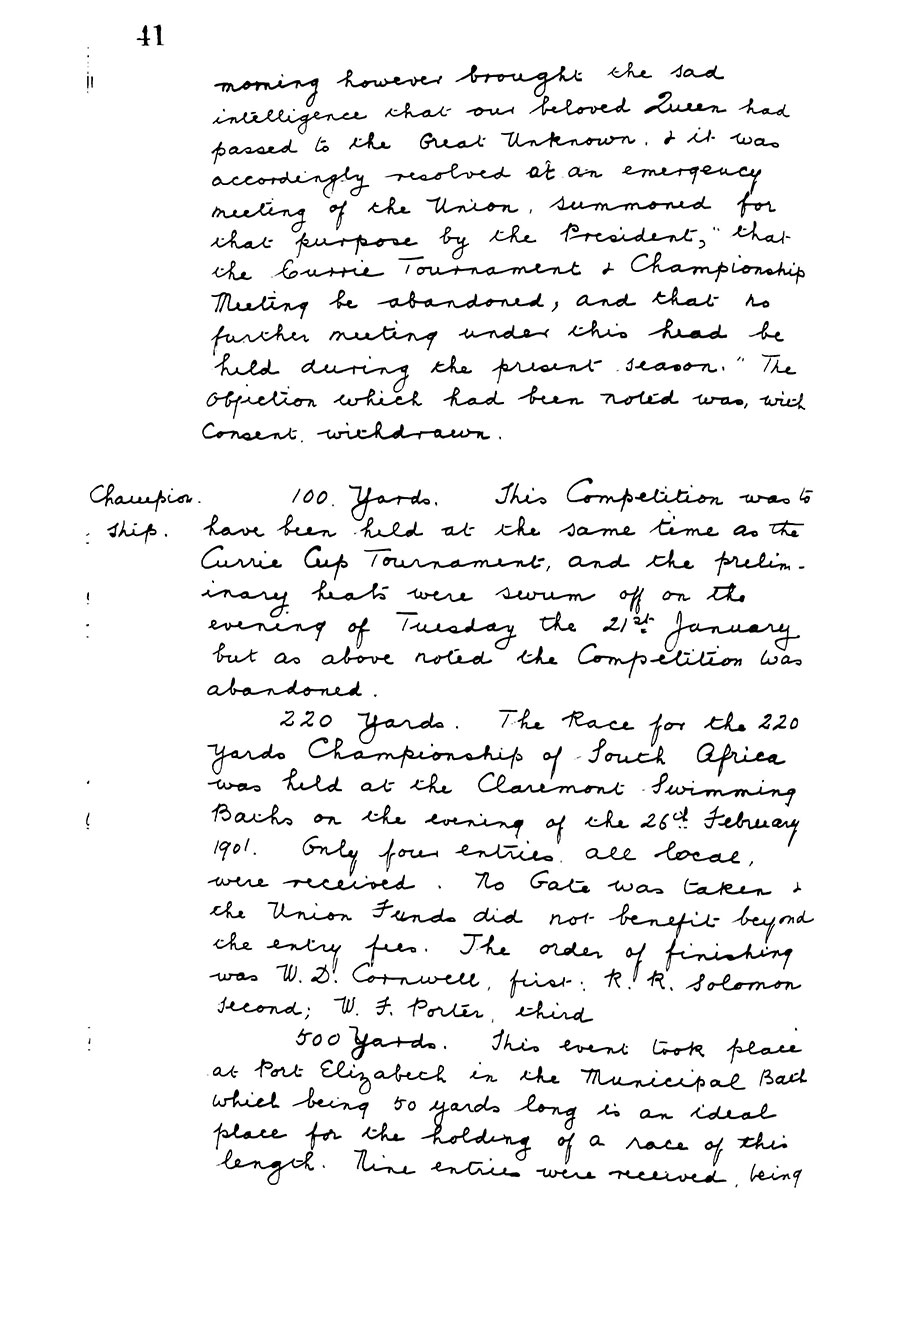 41
morning however brought the sad
intelligence that our beloved Queen had
passed to the Great Unknown, & it was
accordingly resolved at an emergency
meeting of the Union, summoned for
that purpose by the President, "that
the Currie Tournament & Championship
Meeting be abandoned, and that no
further meeting under this head be
held during the present season." The
Objection which had been noted was, with
Consent, withdrawn.
Champion- 100 Yards. This Competition was to
ship. have been held at the same time as the
Currie Cup Tournament, and the prelim-
inary heats were swum off on the
evening of Tuesday the 21st January
but as above noted the Competition was
abandoned.
220 Yards. The Race for the 220
Yards Championship of South Africa
was held at the Claremont Swimming
Baths on the evening of the 26th February
1901. Only four entries, all local,
were received. No Gate was taken &
the Union Funds did not benefit beyond
the entry fees. The order of finishing
was W. D. Cornwell, first; R. R. Solomon
second; W. F. Porter, third
500 Yards. This event took place
at Port Elizabeth in the Municipal Bath
which being 50 yards long is an ideal
place for the holding of a race of this
length. Nine entries were received, being